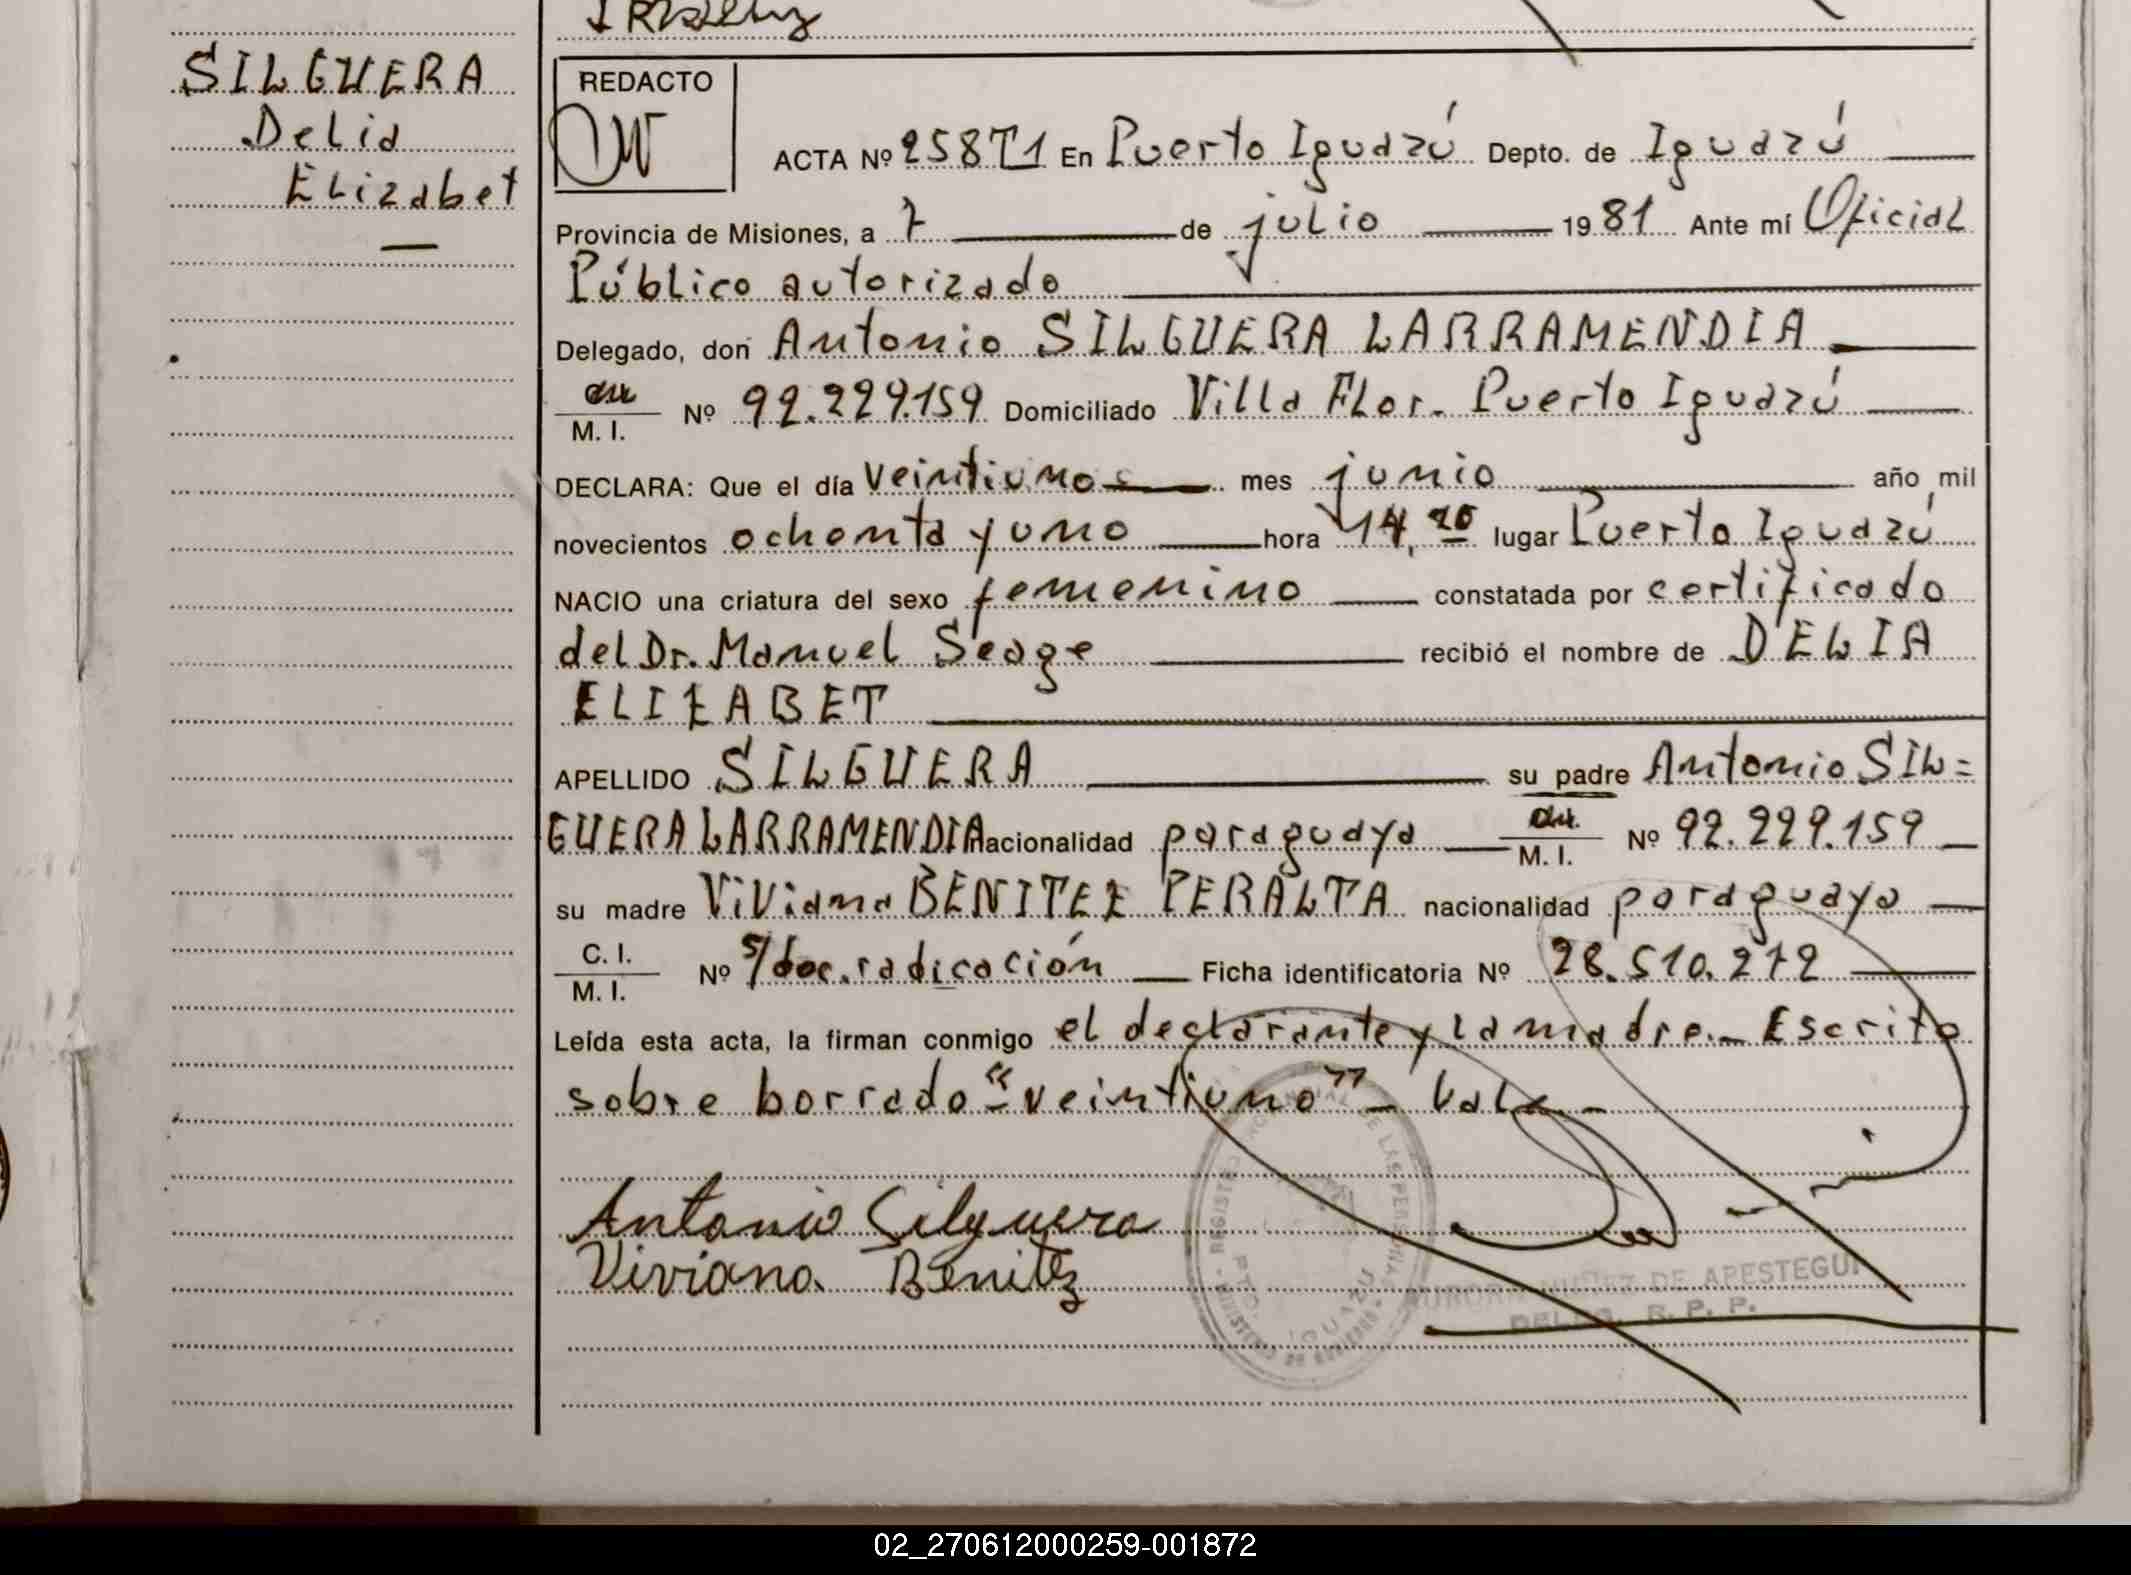 SILGUERA
Delia
Elizabet
REDACTO
ACTA Nº 258T1 En Puerto Iguazú Depto. de Iguazú
Provincia de Misiones, a 7 de julio 1981 Ante mí Oficial
Público autorizado
Delegado, don Antonio SILGUERA LARRAMENDIA
M. I. Nº 92.229.159 Domiciliado Villa Flor. Puerto Iguazú
DECLARA: Que el día veintiuno mes junio año mil
novecientos ochenta y uno hora 14, lugar Puerto Iguazú
NACIO una criatura del sexo femenino constatada por certificado
del Dr. Manuel Seage recibió el nombre de DELIA
ELIZABET
APELLIDO SILGUERA su padre Antonio SIL=
GUERA LARRAMENDIA nacionalidad paraguaya M. I. Nº 92.229.159
su madre Viviana BENITEZ PERALTA nacionalidad paraguaya
C. I.
M. I. Nº s/doc. radicación Ficha identificatoria Nº 28.510.272
Leída esta acta, la firman conmigo el declarante y la madre.- Escrito
sobre borrado "veintiuno" - Vale.-
Antonio Silguera
Viviana Benitez
NUÑEZ DE APESTEGUI
R. P. P.
02_270612000259-001872